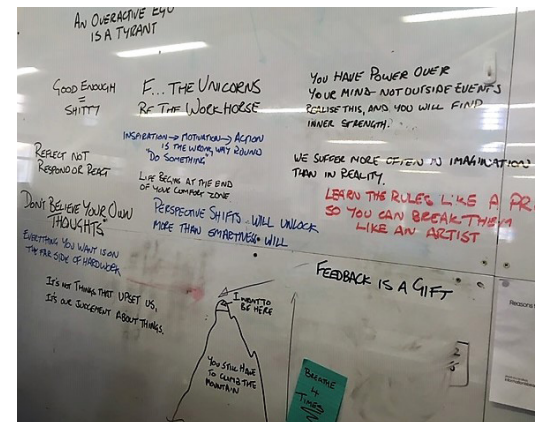 AN OVERACTIVE EGO
IS A TYRANT
GOOD ENOUGH
=
SHITTY
F... THE UNICORNS
BE THE WORKHORSE
YOU HAVE POWER OVER
YOUR MIND - NOT OUTSIDE EVENTS
REALISE THIS, AND YOU WILL FIND
INNER STRENGTH.
INSPIRATION → MOTIVATION → ACTION
IS THE WRONG WAY ROUND
"DO SOMETHING"
REFLECT NOT
RESPOND OR REACT
LIFE BEGINS AT THE END
OF YOUR COMFORT ZONE
WE SUFFER MORE OFTEN IN IMAGINATION
THAN IN REALITY.
LEARN THE RULES LIKE A PR
SO YOU CAN BREAK THEM
LIKE AN ARTIST
DON'T BELIEVE YOUR OWN
THOUGHTS
PERSPECTIVE SHIFTS WILL UNLOCK
MORE THAN SMARTNESS WILL
EVERYTHING YOU WANT IS ON
THE FAR SIDE OF HARDWORK
IT'S NOT THINGS THAT UPSET US,
IT'S OUR JUDGEMENT ABOUT THINGS.
FEEDBACK IS A GIFT
I WANT TO
BE HERE
YOU STILL HAVE
TO CLIMB THE
MOUNTAIN
BREATHE
4
TIMES
Reasons